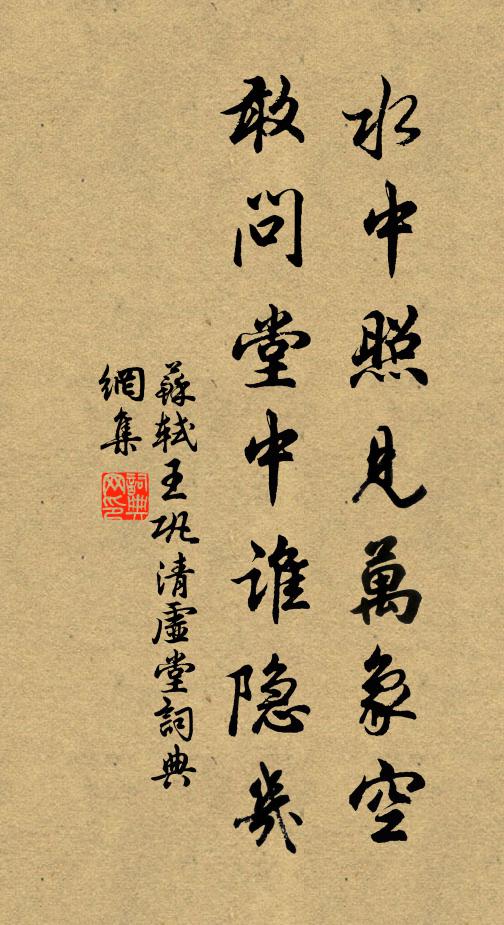 水中照見萬象空
敢問堂中谁隐幾
蘇軾王巩清虛堂詞典
網集
詞典
网印